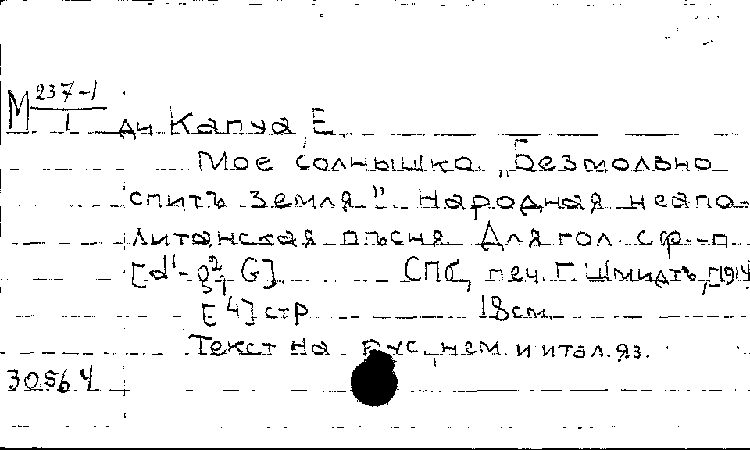 М 237-1
1
ди Капуа, Е.
Мое солнышко. „Безмолвно
спитъ земля". Народная неапо-
литанская пѣсня. Для гол. с ф.-п.
[d¹-g², G]. СПб, печ. Г. Шмидтъ, [191
[4] стр. 18 см.
Текст на рус., нем. и итал. яз.
30564